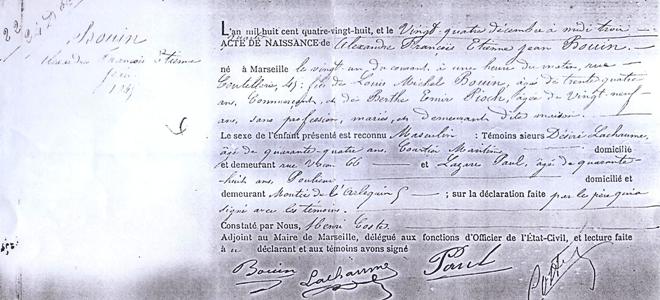 Bouin
Alexandre François Etienne
Jean
L'an mil huit cent quatre-vingt-huit, et le Vingt-quatre décembre à midi trois
quarts
ACTE DE NAISSANCE de Alexandre François Etienne Jean Bouin.
né à Marseille le vingt un du courant, à une heure du matin, rue
Coutellerie, 45; fils de Louis Michel Bouin, âgé de trente quatre
ans, Commerçant, et de Berthe Emir Rioch, âgée de vingt neuf
ans, sans profession, mariés, et demeurant dite maison.
Le sexe de l'enfant présenté est reconnu Masculin : Témoins sieurs Désiré Lachaume,
âgé de quarante-quatre ans, Courtier Maritime domicilié
et demeurant rue 66 et Lazare Paul, âgé de quarante-
huit ans, domicilié et
demeurant Montée de l'Arlequin 5 ; sur la déclaration faite par le père qui a
signé avec les témoins.
Constaté par Nous, Henri
Adjoint au Maire de Marseille, délégué aux fonctions d'Officier de l'État-Civil, et lecture faite
à déclarant et aux témoins avons signé
Bouin Lachaume Paul